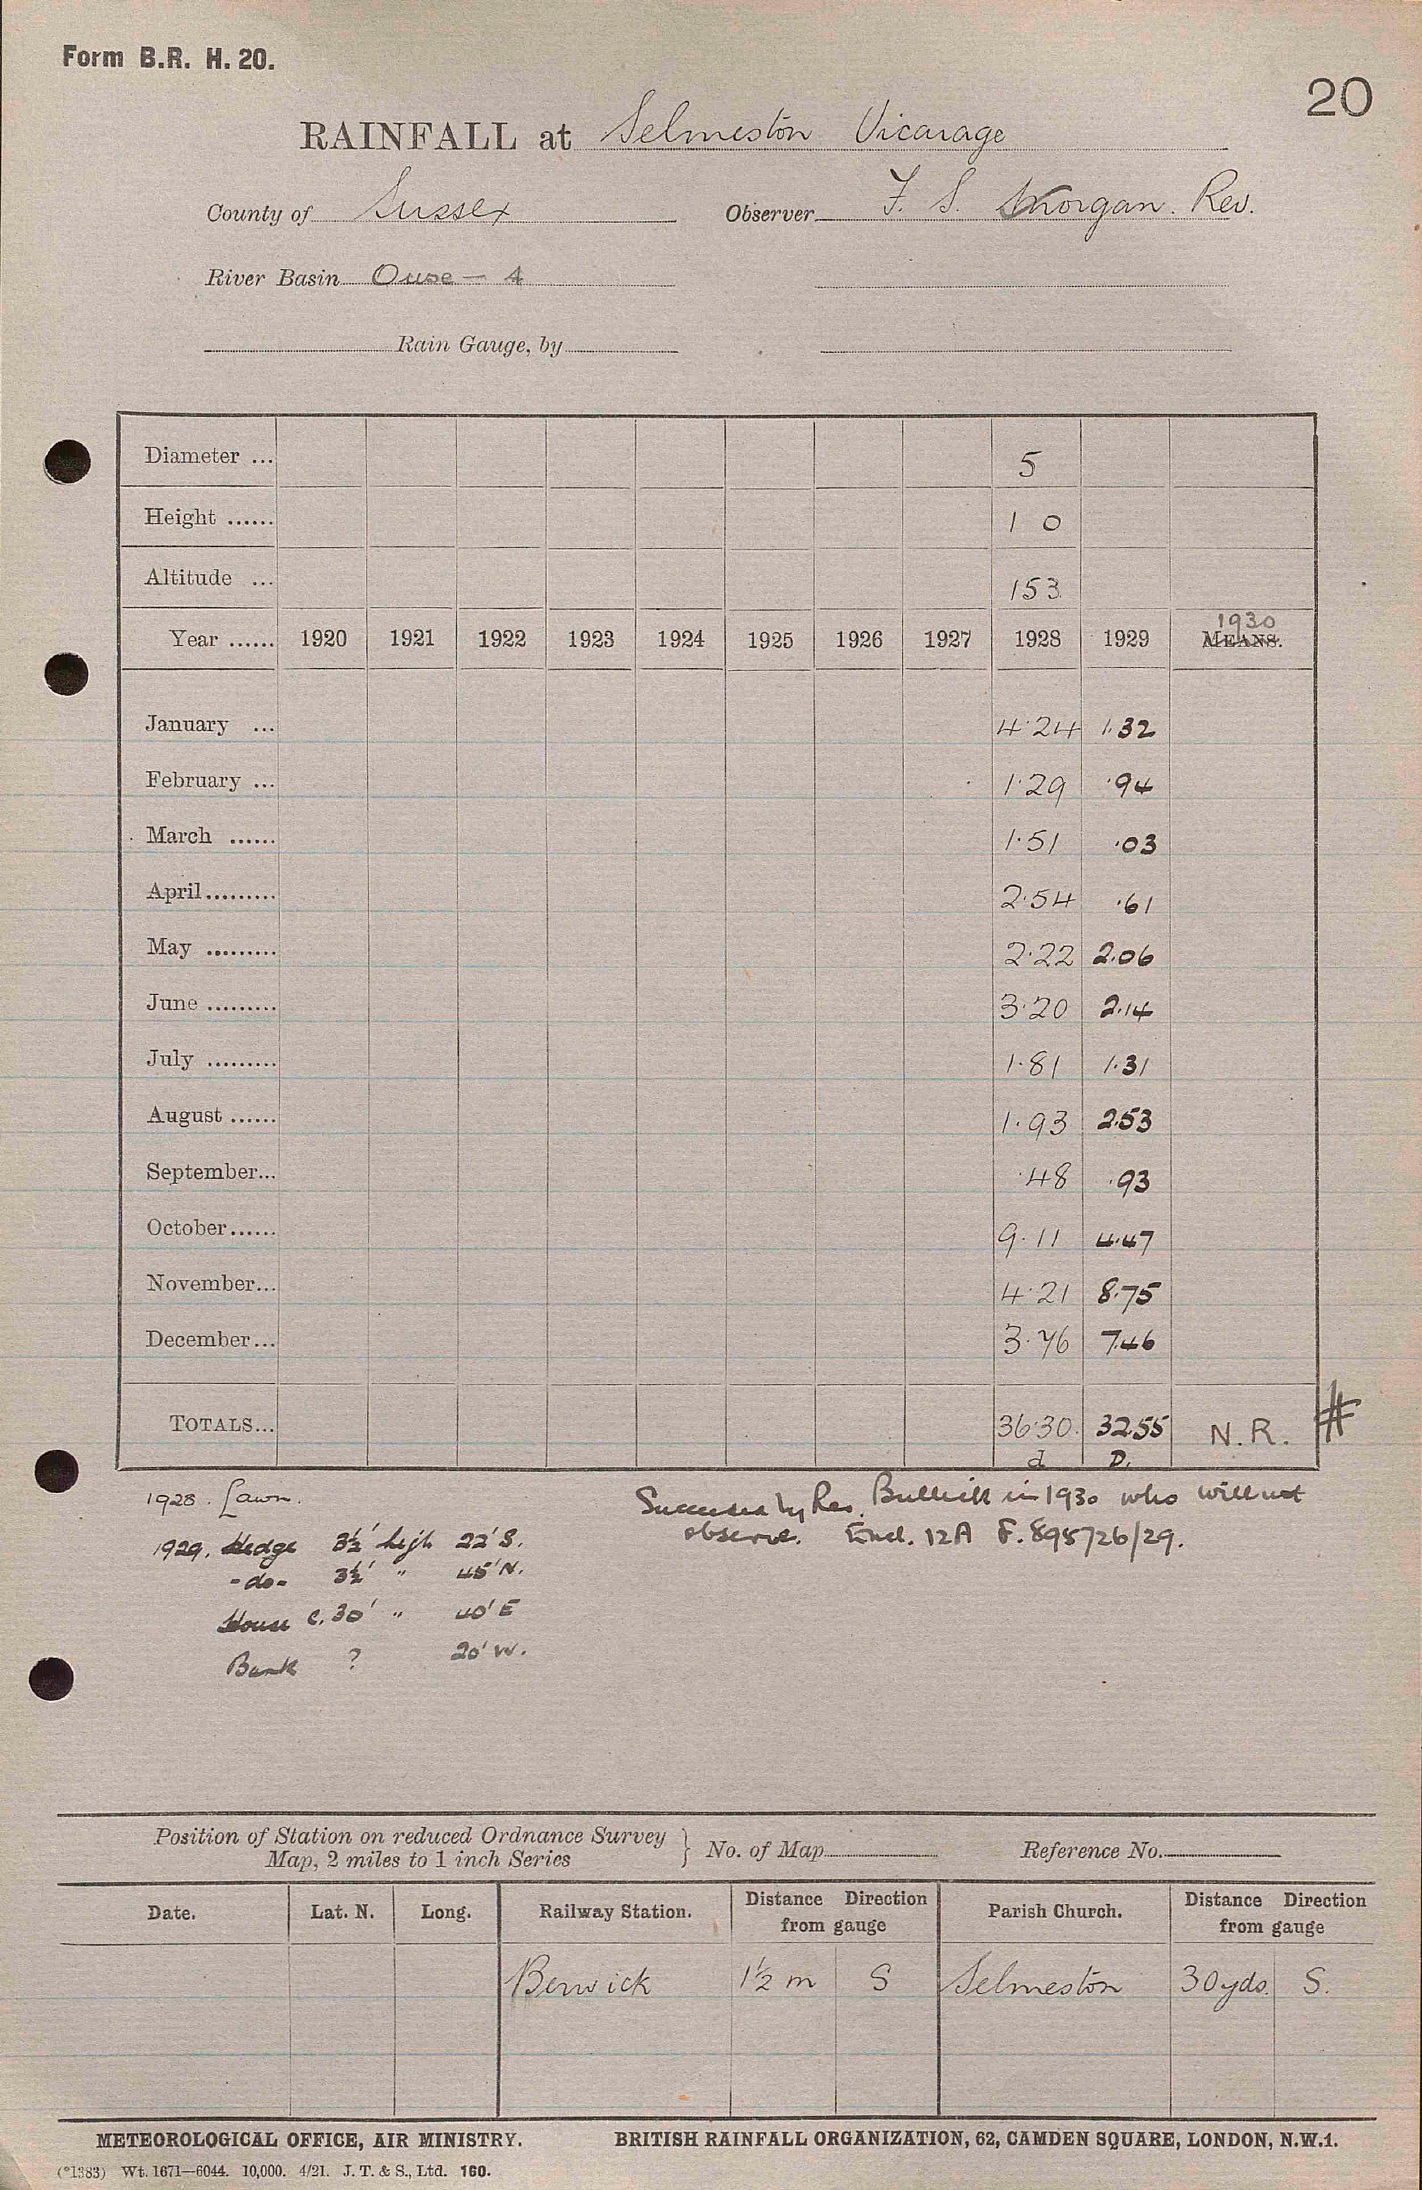 Form B.R. H. 20.
20
RAINFALL at Selmeston Vicarage
County of Sussex Observer F. S. Morgan. Rev.
River Basin Ouse — 4
Rain Gauge, by
Diameter ... 5
Height ...... 1 0
Altitude ... 153
Year ...... 1920 1921 1922 1923 1924 1925 1926 1927 1928 1929 MEANS. 1930
January ... 4·24 1·32
February ... 1·29 ·94
March ...... 1·51 ·03
April......... 2·54 ·61
May ......... 2·22 2·06
June ......... 3·20 2·14
July ......... 1·81 1·31
August ...... 1·93 2·53
September... ·48 ·93
October...... 9·11 4·47
November... 4·21 8·75
December... 3·76 7·46
TOTALS... 36·30 32·55 N.R. #
d D.
1928. Lawn.
1929. Hedge 3½' high 22' S.
-do- 3½' " 45' N.
House c. 30' " 40' E
Bank ? 20' W.
Succeeded by Rev. in 1930 who will not
observe. Encl. 12A F. 898726/29.
Position of Station on reduced Ordnance Survey
Map, 2 miles to 1 inch Series } No. of Map Reference No.
Date. Lat. N. Long. Railway Station. Distance Direction from gauge Parish Church. Distance Direction from gauge
Berwick 1½ m S Selmeston 30 yds. S.
METEOROLOGICAL OFFICE, AIR MINISTRY. BRITISH RAINFALL ORGANIZATION, 62, CAMDEN SQUARE, LONDON, N.W.1.
(*1383) Wt. 1671—6044. 10,000. 4/21. J. T. & S., Ltd. 160.